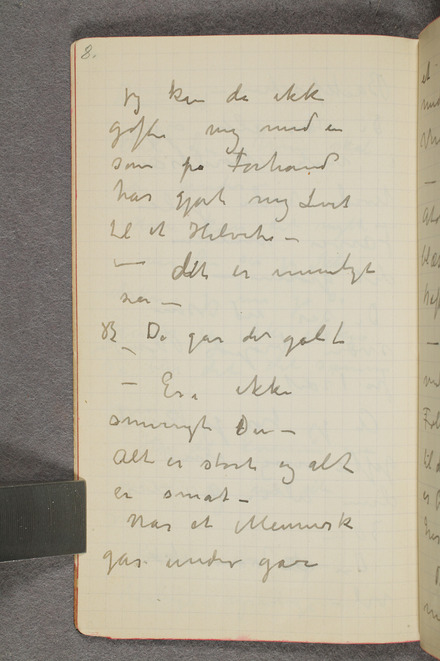 8.
jeg kan da ikke
gifte mig med en
som på Forhånd
har gjort mig Livet
til et Helvete –
– det er umuligt
sier –
B Da går det galt
– Er. ikke
småligt Du –
Alt er stort og alt
er småt –
Når et Mennesk
går under gåe